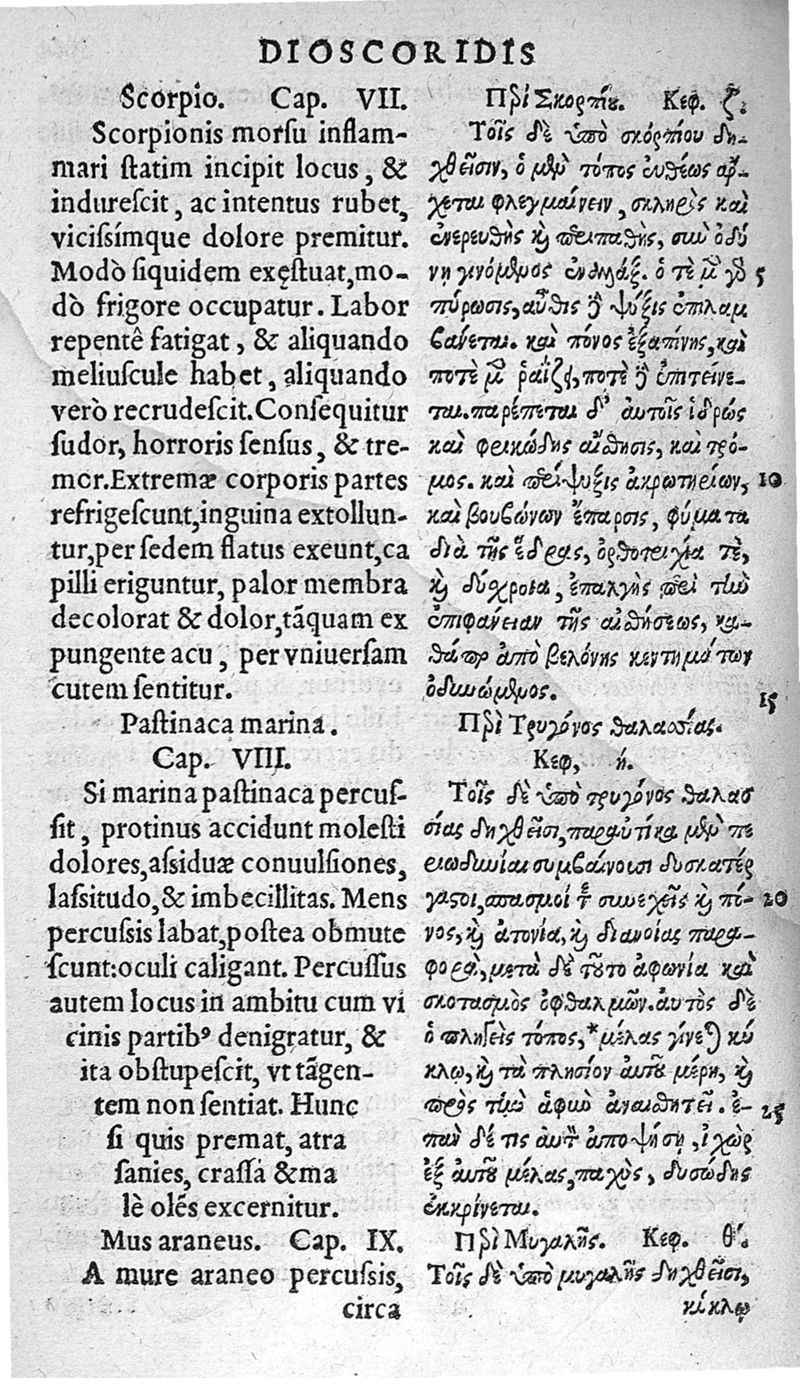 DIOSCORIDIS
Scorpio. Cap. VII.
Scorpionis morsu inflam-
mari ſtatim incipit locus, &
indureſcit, ac intentus rubet,
viciſsímque dolore premitur.
Modò ſiquidem exęſtuat,mo-
dò frigore occupatur. Labor
repentê fatigat, & aliquando
meliuſcule habet, aliquando
verò recrudeſcit.Conſequitur
ſudor, horroris ſenſus, & tre-
mor.Extremæ corporis partes
refrigeſcunt,inguina extollun-
tur,per ſedem flatus exeunt,ca
pilli eriguntur, palor membra
decolorat & dolor,tãquam ex
pungente acu, per vniuerſam
cutem ſentitur.
Paſtinaca marina.
Cap. VIII.
Si marina paſtinaca percuſ-
ſit, protinus accidunt moleſti
dolores,aſsiduæ conuulſiones,
laſsitudo,& imbecillitas. Mens
percuſsis labat,poſtea obmute
ſcunt:oculi caligant. Percuſſus
autem locus in ambitu cum vi
cinis partibꝰ denigratur, &
ita obſtupeſcit, vt tãgen-
tem non ſentiat. Hunc
ſi quis premat, atra
ſanies, craſſa &ma
lè olẽs excernitur.
Mus araneus. Cap. IX.
A mure araneo percuſsis,
circa
Πε͂ρὶ Σκορπίου. Κεφ. ζ.
Τοῖς δὲ ὑπὸ σκορπίου δη-
χθεῖσιν, ὁ μὲν τόπος εὐθέως ἄρ-
χεται φλεγμαίνειν, σκληρὸς καὶ
ἐνερευθὴς καὶ περιπαθὴς, σὺν ὀδύ
νῃ γινόμενος ἐναλλάξ. ὁτὲ μὲν γὸ 5
πύρωσις,αὖθις δὲ ψύξις ἐπιλαμ
βάνεται. καὶ πόνος ἐξαπίνης,καὶ
ποτὲ μὲν ῥαΐζει,ποτὲ δὲ ἐπιτείνε-
ται.παρέπεται δ' αὐτοῖς ἱδρώς
καὶ φρικώδης αἴσθησις, καὶ τρό-
μος. καὶ περίψυξις ἀκρωτηρίων, 10
καὶ βουβώνων ἔπαρσις, φύματα
διὰ τῆς ἕδρας, ὀρθοτριχία τὲ,
καὶ δύσχροια, ἐπαλγὴς περὶ τὴν
ἐπιφάνειαν τῆς αἰσθήσεως, κα-
θάπερ ἀπὸ βελόνης κεντημάτων
ὀδυνώμενος. 15
Περὶ Τρυγόνος θαλασσίας.
Κεφ, ή.
Τοῖς δὲ ὑπὸ τρυγόνος θαλασ
σίας δηχθεῖσι,παραυτίκα μὲν πε
ριωδυνίαι συμβαίνουσι δυσκατέρ
γαστοι,σπασμοί τε συνεχεῖς καὶ πό- 20
νος,καὶ ἀτονία,καὶ διανοίας παρα-
φορὰ,μετὰ δὲ τοῦτο ἀφωνία καὶ
σκοτασμὸς ὀφθαλμῶν.αὐτὸς δὲ
ὁ πληγεὶς τόπος,*μέλας γίνεται κύ
κλῳ,καὶ τὰ πλησίον αὐτοῦ μέρη, καὶ
πρὸς τὴν ἁφὴν ἀναισθητεῖ. ἐ- 25
πὰν δέ τις αὐτὸν ἀποψήσῃ, ἰχὼρ
ἐξ αὐτοῦ μέλας,παχὺς, δυσώδης
ἐκκρίνεται.
Περὶ Μυγαλῆς. Κεφ. θ'.
Τοῖς δὲ ὑπὸ μυγαλῆς δηχθεῖσι,
κύκλῳ